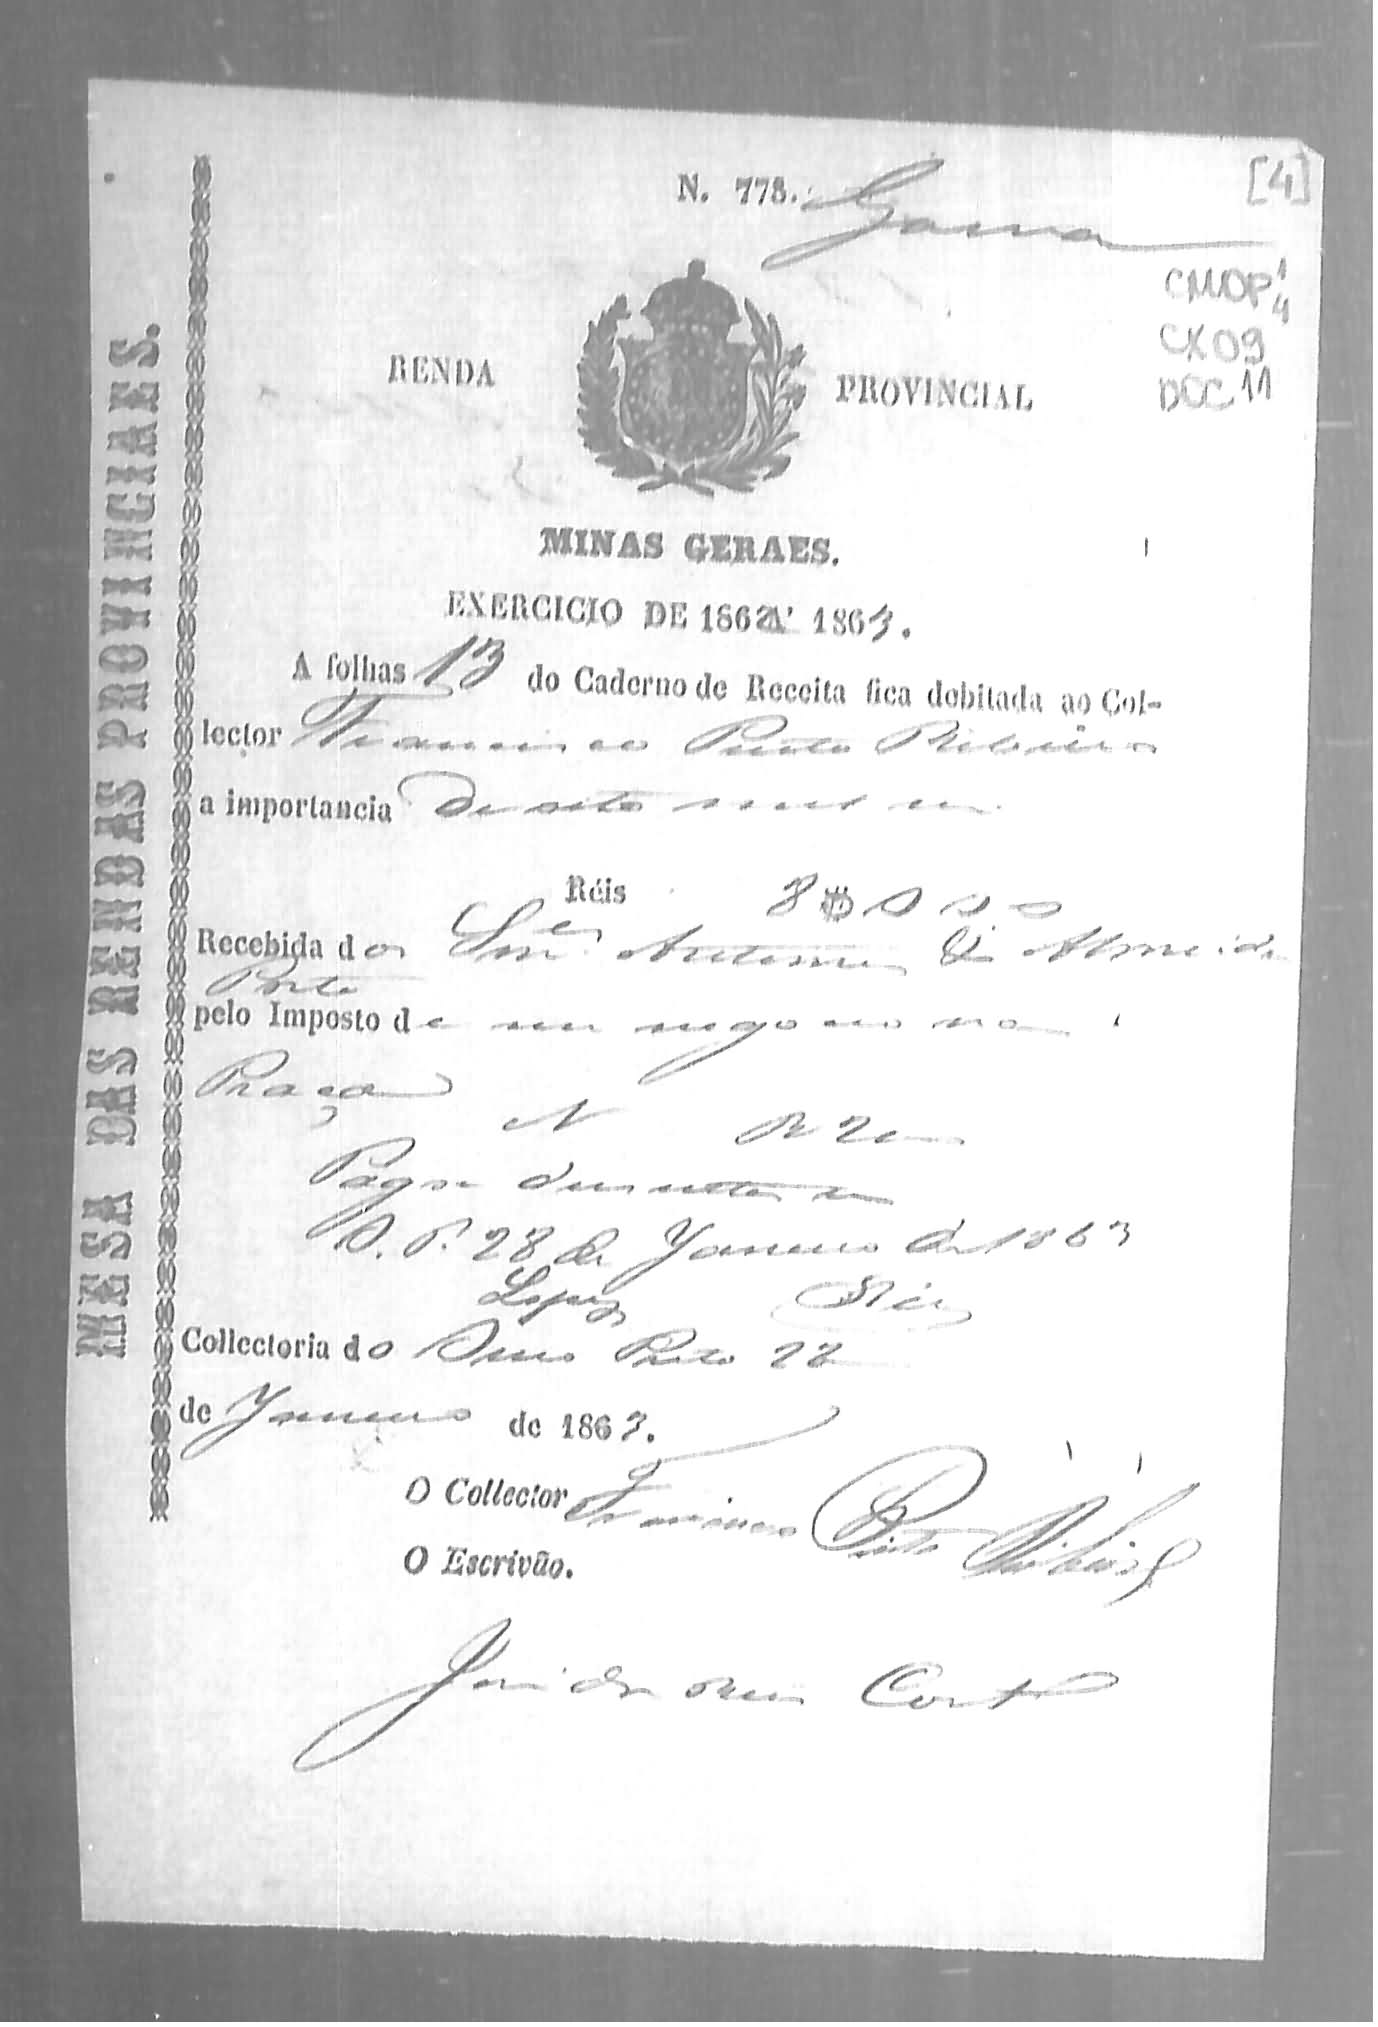 [4]
N. 778. Gama
CMOP 1/4
CX 09
DOC 11
RENDA PROVINCIAL
MINAS GERAES.
EXERCICIO DE 1862 A 1863.
A folhas 13 do Caderno de Receita fica debitada ao Col-
lector Francisco Pinto Ribeiro
a importancia de oito mil
Réis 8$000
Recebida dos Antonio de Almeida
Porto
pelo Imposto de um negocio na
Praça
N
Pagou
O. P. 28 de Janeiro de 1863
Lopes
Collectoria do Ouro Preto 28
de Janeiro de 1863.
O Collector Francisco Pinto Ribeiro
O Escrivão.
Costa
MESA DAS RENDAS PROVINCIAES.